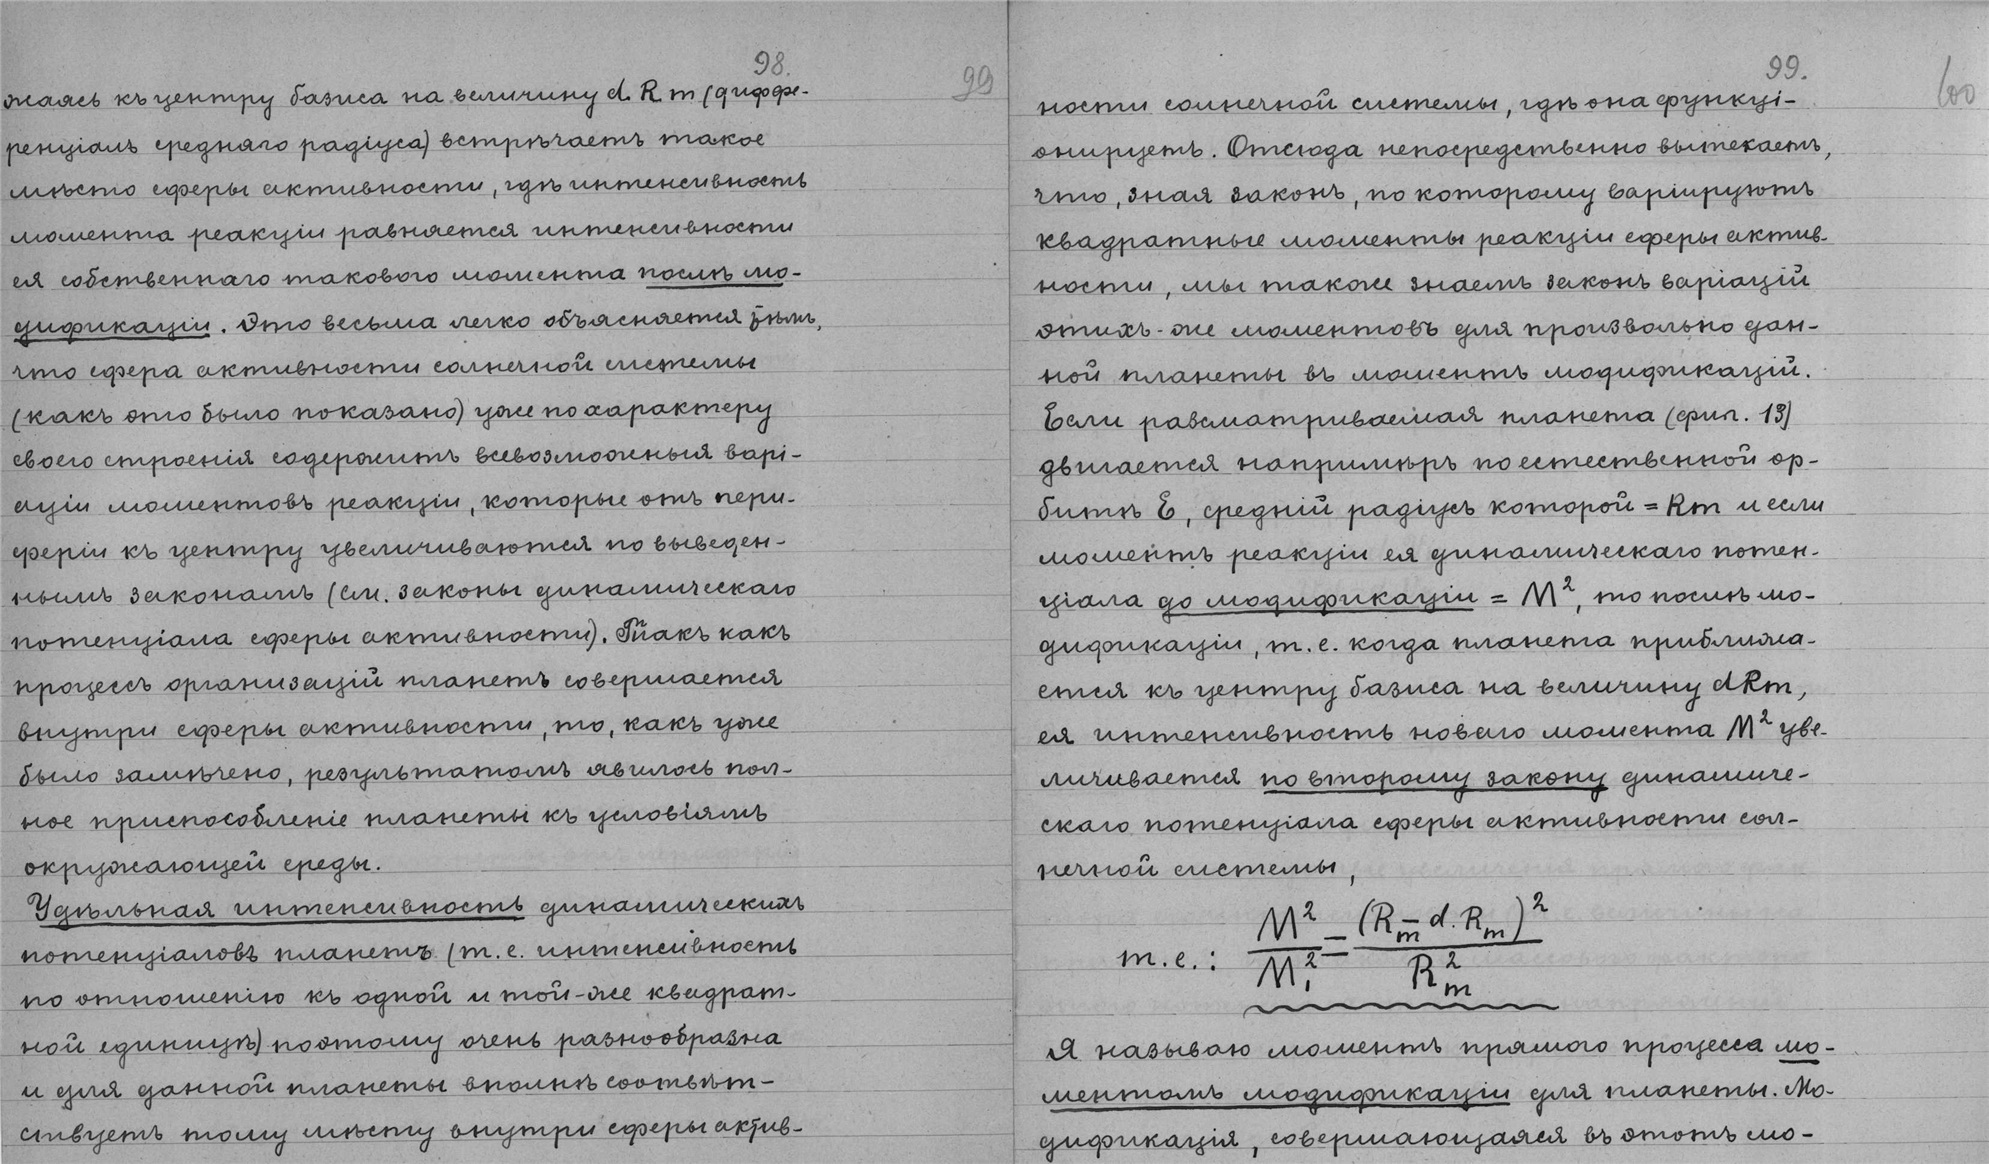 98.
99
жаясь къ центру базиса на величину d. R m (диффе-
ренціалъ средняго радіуса) встрѣчаетъ такое
мѣсто сферы активности, гдѣ интенсивность
момента реакціи равняется интенсивности
ея собственнаго такового момента послѣ мо-
дификаціи. Это весьма легко объясняется тѣмъ,
что сфера активности солнечной системы
(какъ это было показано) уже по характеру
своего строенія содержитъ всевозможныя варі-
аціи моментовъ реакціи, которые отъ пери-
феріи къ центру увеличиваются по выведен-
нымъ законамъ (см. законы динамическаго
потенціала сферы активности). Такъ какъ
процессъ организацій планетъ совершается
внутри сферы активности, то, какъ уже
было замѣчено, результатомъ явилось пол-
ное приспособленіе планеты къ условіямъ
окружающей среды.
Удѣльная интенсивность динамическихъ
потенціаловъ планетъ (т. е. интенсивность
по отношенію къ одной и той-же квадрат-
ной единицѣ) поэтому очень разнообразна
и для данной планеты вполнѣ соотвѣт-
ствуетъ тому мѣсту внутри сферы актив-
99.
100
ности солнечной системы, гдѣ она функці-
онируетъ. Отсюда непосредственно вытекаетъ,
что, зная законъ, по которому варіируютъ
квадратные моменты реакціи сферы актив-
ности, мы также знаемъ законъ варіацій
этихъ-же моментовъ для произвольно дан-
ной планеты въ моментъ модификацій.
Если разсматриваемая планета (фиг. 13)
двигается напримѣръ по естественной ор-
битѣ E, средній радіусъ которой = Rm и если
моментъ реакціи ея динамическаго потен-
ціала до модификаціи = M², то послѣ мо-
дификаціи, т. е. когда планета приближа-
ется къ центру базиса на величину dRm,
ея интенсивность новаго момента M² уве-
личивается по второму закону динамиче-
скаго потенціала сферы активности сол-
нечной системы,
т. е.: M²/M₁² = (Rₘ – d. Rₘ)²/Rₘ²
Я называю моментъ прямого процесса мо-
ментомъ модификаціи для планеты. Мо-
дификація, совершающаяся въ этотъ мо-